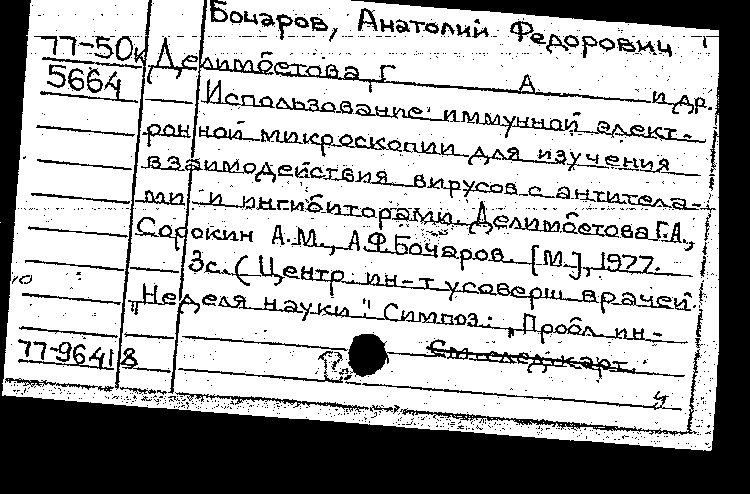 Бочаров, Анатолий Федорович
77-50к Делимбетова, Г А и др.
5664 Использование иммунной элект-
ронной микроскопии для изучения
взаимодействия вирусов с антитела-
ми и ингибиторами. Делимбетова Г.А.,
Сорокин А.М., А.Ф.Бочаров. [М.], 1977.
3с. (Центр. ин-т усоверш. врачей.
"Неделя науки". Симпоз.: "Пробл. ин-
77-96418 См. след. карт.